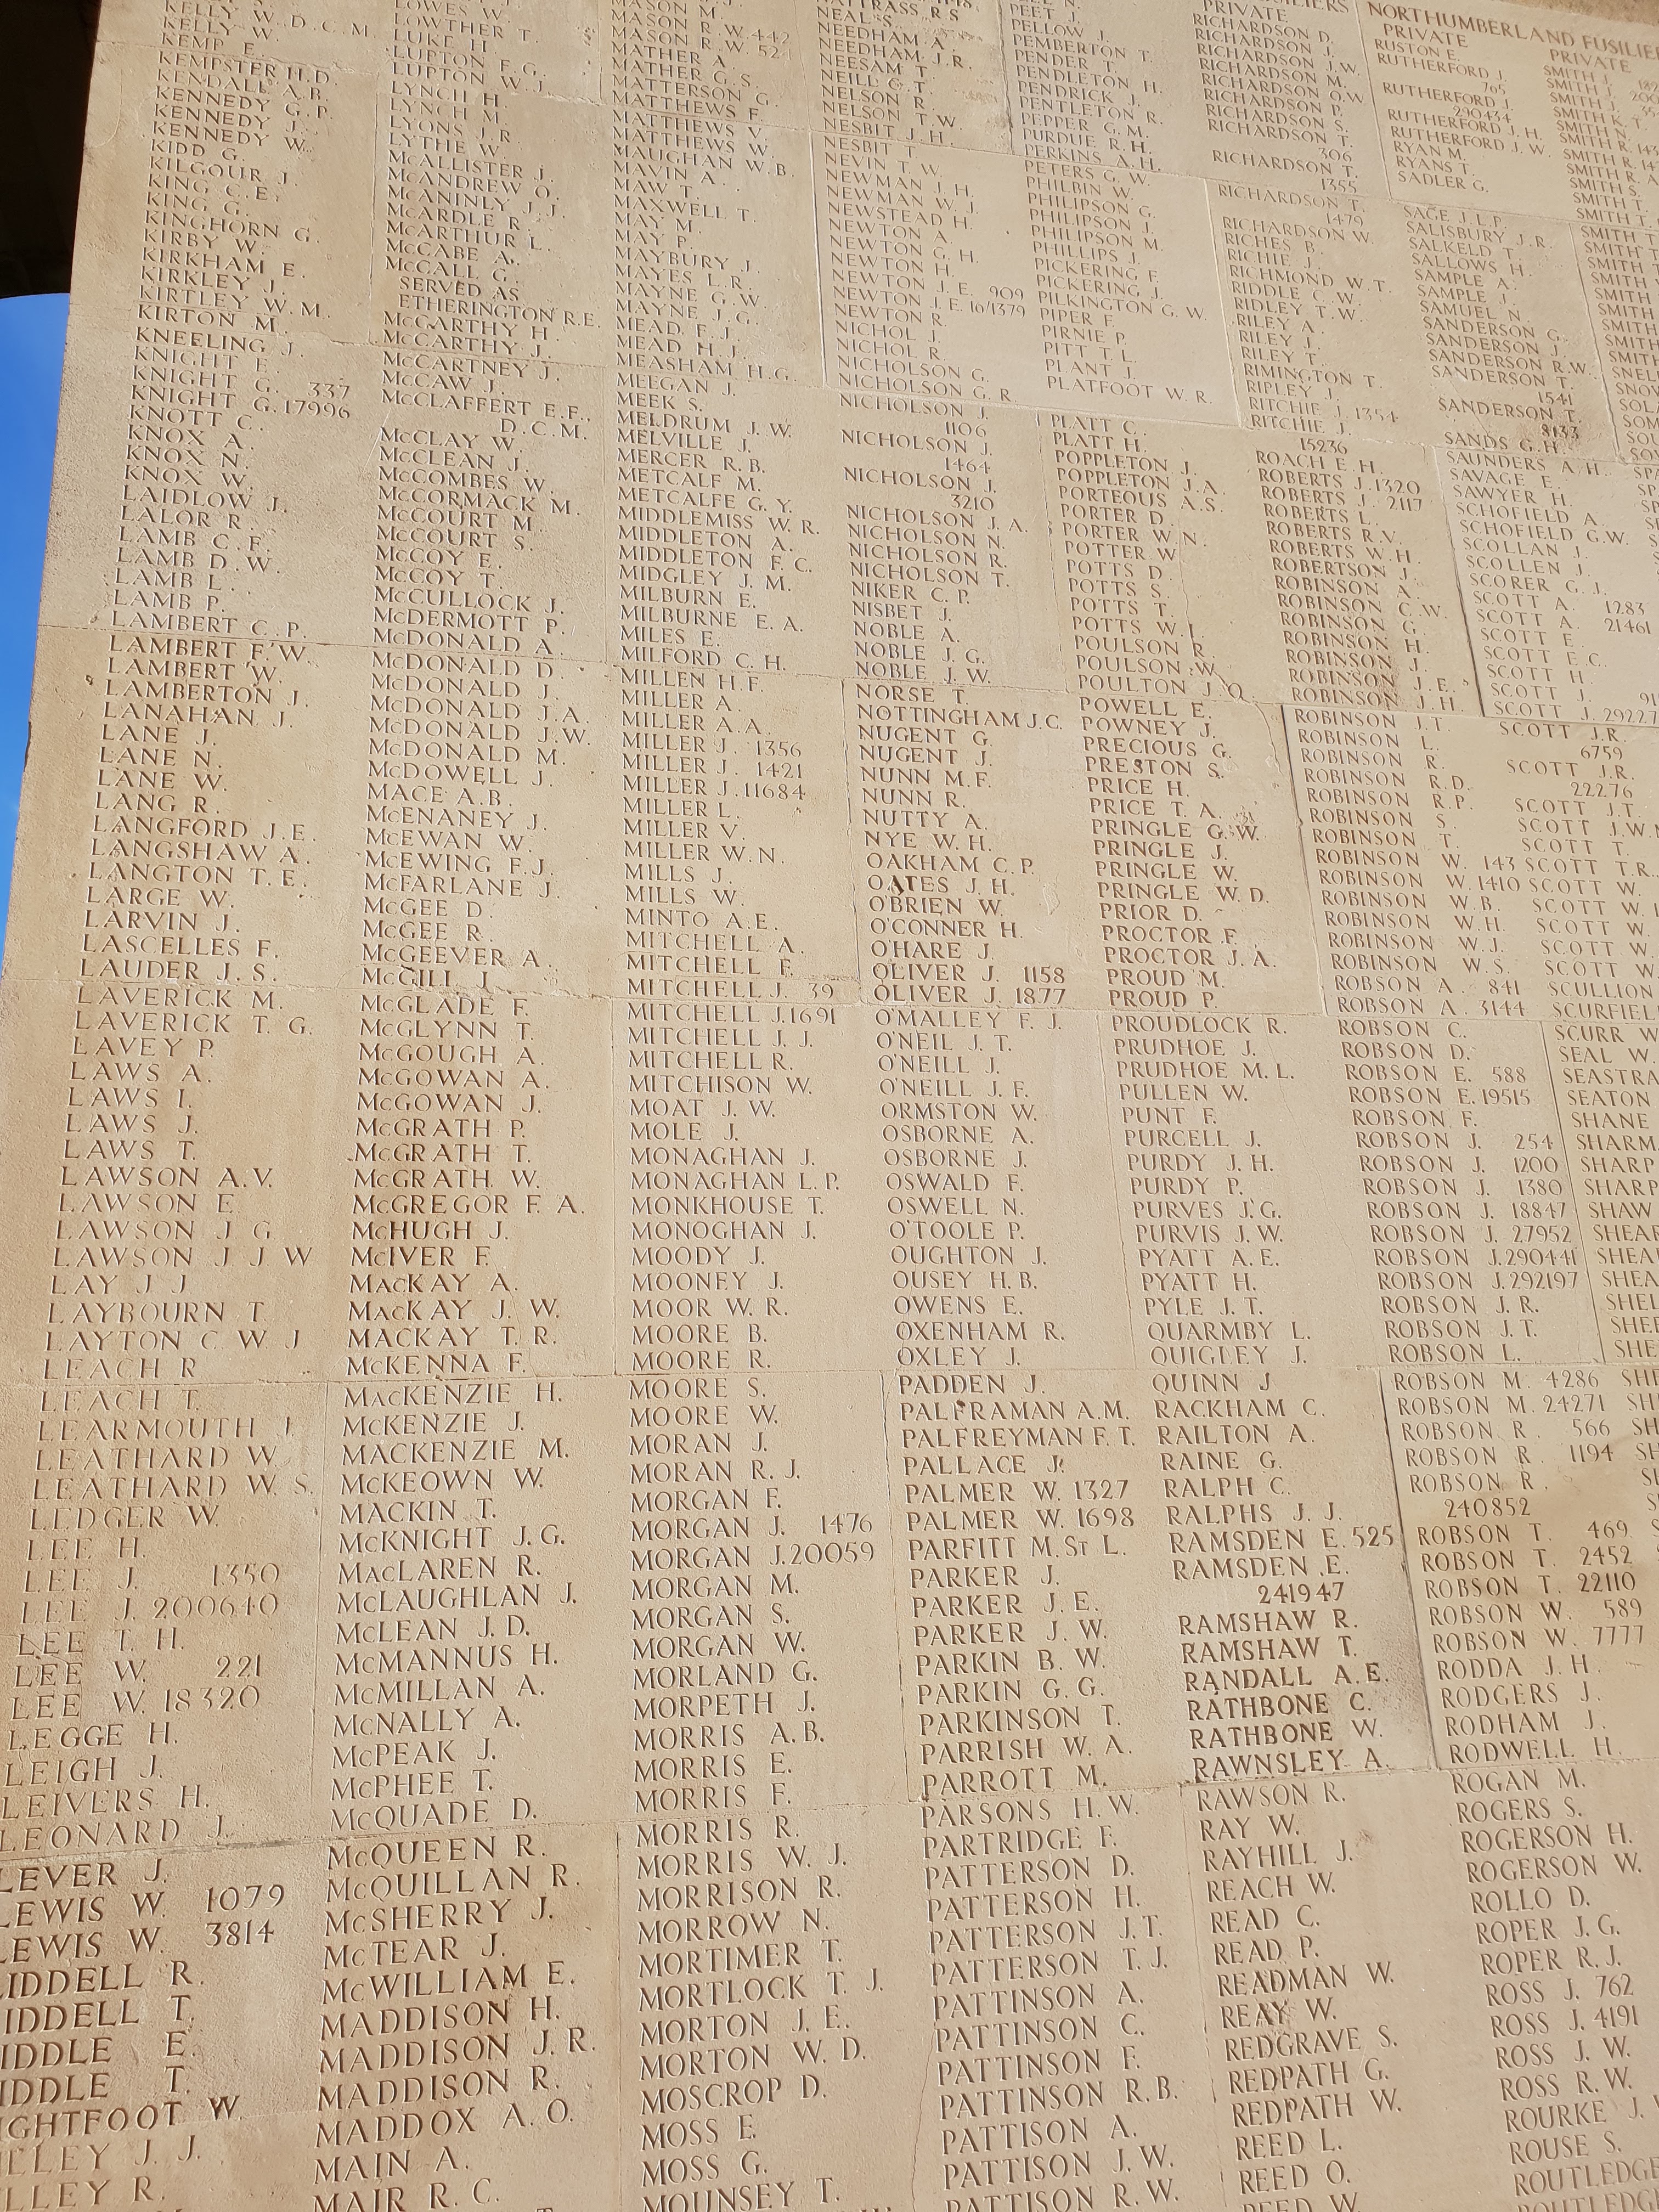 KELLY W. D.C.M.
KELLY W.
KEMP E.
KEMPSTER H.D.
KENDALL A.B.
KENNEDY G.P.
KENNEDY J.
KENNEDY W.
KIDD G.
KILGOUR J.
KING C.E.
KING G.
KINGHORN G.
KIRBY W.
KIRKHAM E.
KIRKLEY J.
KIRTLEY W.M.
KIRTON M.
KNEELING J.
KNIGHT E.
KNIGHT G. 337
KNIGHT G. 17996
KNOTT C.
KNOX A.
KNOX N.
KNOX W.
LAIDLOW J.
LALOR R.
LAMB C.F.
LAMB D.W.
LAMB L.
LAMB P.
LAMBERT C.P.
LAMBERT F.W.
LAMBERT W.
LAMBERTON J.
LANAHAN J.
LANE J.
LANE N.
LANE W.
LANG R.
LANGFORD J.E.
LANGSHAW A.
LANGTON T.E.
LARGE W.
LARVIN J.
LASCELLES F.
LAUDER J.S.
LAVERICK M.
LAVERICK T.G.
LAVEY P.
LAWS A.
LAWS I.
LAWS J.
LAWS T.
LAWSON A.V.
LAWSON E
LAWSON J G
LAWSON J J W
LAY J J
LAYBOURN T.
LAYTON C W J
LEACH R
LEACH T.
LEARMOUTH J.
LEATHARD W.
LEATHARD W.S.
LEDGER W.
LEE H.
LEE J. 1350
LEE J. 200640
LEE T.H.
LEE W. 221
LEE W. 18320
LEGGE H.
LEIGH J.
LEIVERS H.
LEONARD J.
LEVER J.
LEWIS W. 1079
LEWIS W. 3814
IDDELL R.
IDDELL T.
IDDLE E.
IDDLE T.
IGHTFOOT W.
LLEY J.J.
LLEY R.
LOWES W.
LOWTHER T.
LUKE H.
LUPTON F.G.
LUPTON W.J.
LYNCH H.
LYNCH M.
LYONS J.R.
LYTHE W.
McALLISTER J.
McANDREW O.
McANINLY J.J.
McARDLE R.
McARTHUR L.
McCABE A.
McCALL G.
SERVED AS
ETHERINGTON R.E.
McCARTHY H.
McCARTHY J.
McCARTNEY J.
McCAW J.
McCLAFFERT E.F.
D.C.M.
McCLAY W.
McCLEAN J.
McCOMBES W.
McCORMACK M.
McCOURT M.
McCOURT S.
McCOY E.
McCOY T.
McCULLOCK J.
McDERMOTT P.
McDONALD A.
McDONALD D.
McDONALD J.
McDONALD J.A.
McDONALD J.W.
McDONALD M.
McDOWELL J.
MACE A.B.
McENANEY J.
McEWAN W.
McEWING F.J.
McFARLANE J.
McGEE D.
McGEE R.
McGEEVER A.
McGILL J.
McGLADE F.
McGLYNN T.
McGOUGH A.
McGOWAN A.
McGOWAN J.
McGRATH P.
McGRATH T.
McGRATH W.
McGREGOR F.A.
McHUGH J.
McIVER F.
MacKAY A.
MacKAY J.W.
MACKAY T.R.
McKENNA F.
MacKENZIE H.
McKENZIE J.
MACKENZIE M.
McKEOWN W.
MACKIN T.
McKNIGHT J.G.
MacLAREN R.
McLAUGHLAN J.
McLEAN J.D.
McMANNUS H.
McMILLAN A.
McNALLY A.
McPEAK J.
McPHEE T.
McQUADE D.
McQUEEN R.
McQUILLAN R.
McSHERRY J.
McTEAR J.
McWILLIAM E.
MADDISON H.
MADDISON J.R.
MADDISON R.
MADDOX A.O.
MAIN A.
MAIR R.C.
MASON M.
MASON R.W. 442
MASON R.W. 524
MATHER A.
MATHER G.S.
MATTERSON G.
MATTHEWS F.
MATTHEWS V.
MATTHEWS W.
MAUGHAN W.B.
MAVIN A.
MAW T.
MAXWELL T.
MAY M.
MAY P.
MAYBURY J.
MAYES L.R.
MAYNE G.W.
MAYNE J.G.
MEAD F.J.
MEAD H.J.
MEASHAM H.G.
MEEGAN J.
MEEK S.
MELDRUM J.W.
MELVILLE J.
MERCER R.B.
METCALF M.
METCALFE G.Y.
MIDDLEMISS W.R.
MIDDLETON A.
MIDDLETON F.C.
MIDGLEY J.M.
MILBURN E.
MILBURNE E.A.
MILES E.
MILFORD C.H.
MILLEN H.F.
MILLER A.
MILLER A.A.
MILLER J. 1356
MILLER J. 1421
MILLER J. 11684
MILLER L.
MILLER V.
MILLER W.N.
MILLS J.
MILLS W.
MINTO A.E.
MITCHELL A.
MITCHELL F.
MITCHELL J. 39
MITCHELL J. 1691
MITCHELL J.J.
MITCHELL R.
MITCHISON W.
MOAT J.W.
MOLE J.
MONAGHAN J.
MONAGHAN L.P.
MONKHOUSE T.
MONOGHAN J.
MOODY J.
MOONEY J.
MOOR W.R.
MOORE B.
MOORE R.
MOORE S.
MOORE W.
MORAN J.
MORAN R.J.
MORGAN F.
MORGAN J. 1476
MORGAN J. 20059
MORGAN M.
MORGAN S.
MORGAN W.
MORLAND G.
MORPETH J.
MORRIS A.B.
MORRIS E.
MORRIS F.
MORRIS R.
MORRIS W.J.
MORRISON R.
MORROW N.
MORTIMER T.
MORTLOCK T.J.
MORTON J.E.
MORTON W.D.
MOSCROP D.
MOSS E.
MOSS G.
MOUNSEY T.
NEAL S.
NEEDHAM A.
NEEDHAM J.R.
NEESAM T.
NEILL G.T.
NELSON R.
NELSON T.W.
NESBIT J.H.
NESBIT T.
NEVIN T.W.
NEWMAN J.H.
NEWMAN W.J.
NEWSTEAD H.
NEWTON A.
NEWTON G.H.
NEWTON H.
NEWTON J.E. 909
NEWTON J.E. 16/1379
NEWTON R.
NICHOL J.
NICHOL R.
NICHOLSON G.
NICHOLSON G.R.
NICHOLSON J.
1106
NICHOLSON J.
1464
NICHOLSON J.
3210
NICHOLSON J.A.
NICHOLSON N.
NICHOLSON R.
NICHOLSON T.
NIKER C.P.
NISBET J.
NOBLE A.
NOBLE J.G.
NOBLE J.W.
NORSE T.
NOTTINGHAM J.C.
NUGENT G.
NUGENT J.
NUNN M.F.
NUNN R.
NUTTY A.
NYE W.H.
OAKHAM C.P.
OATES J.H.
O'BRIEN W.
O'CONNER H.
O'HARE J.
OLIVER J. 1158
OLIVER J. 1877
O'MALLEY F.J.
O'NEIL J.T.
O'NEILL J.
O'NEILL J.F.
ORMSTON W.
OSBORNE A.
OSBORNE J.
OSWALD F.
OSWELL N.
O'TOOLE P.
OUGHTON J.
OUSEY H.B.
OWENS E.
OXENHAM R.
OXLEY J.
PADDEN J.
PALFRAMAN A.M.
PALFREYMAN F.T.
PALLACE J.
PALMER W. 1327
PALMER W. 1698
PARFITT M.St L.
PARKER J.
PARKER J.E.
PARKER J.W.
PARKIN B.W.
PARKIN G.G.
PARKINSON T.
PARRISH W.A.
PARROTT M.
PARSONS H.W.
PARTRIDGE F.
PATTERSON D.
PATTERSON H.
PATTERSON J.T.
PATTERSON T.J.
PATTINSON A.
PATTINSON C.
PATTINSON F.
PATTINSON R.B.
PATTISON A.
PATTISON J.W.
PATTISON R.W.
PEET J.
PELLOW J.
PEMBERTON T.
PENDER T.
PENDLETON H.
PENDRICK J.
PENTLETON R.
PEPPER G.M.
PURDUE R.H.
PERKINS A.H.
PETERS G.W.
PHILBIN W.
PHILIPSON G.
PHILIPSON J.
PHILIPSON M.
PHILLIPS J.
PICKERING F.
PICKERING J.
PILKINGTON G.W.
PIPER F.
PIRNIE P.
PITT T.L.
PLANT J.
PLATFOOT W.R.
PLATT C.
PLATT H.
POPPLETON J.
POPPLETON J.A.
PORTEOUS A.S.
PORTER D.
PORTER W.N.
POTTER W.
POTTS D.
POTTS S.
POTTS T.
POTTS W.L.
POULSON R.
POULSON W.
POULTON J.O.
POWELL E.
POWNEY J.
PRECIOUS G.
PRESTON S.
PRICE H.
PRICE T.A.
PRINGLE G.W.
PRINGLE J.
PRINGLE W.
PRINGLE W.D.
PRIOR D.
PROCTOR F.
PROCTOR J.A.
PROUD M.
PROUD P.
PROUDLOCK R.
PRUDHOE J.
PRUDHOE M.L.
PULLEN W.
PUNT F.
PURCELL J.
PURDY J.H.
PURDY P.
PURVES J.G.
PURVIS J.W.
PYATT A.E.
PYATT H.
PYLE J.T.
QUARMBY L.
QUIGLEY J.
QUINN J
RACKHAM C.
RAILTON A.
RAINE G.
RALPH C.
RALPHS J.J.
RAMSDEN E. 525
RAMSDEN E.
241947
RAMSHAW R.
RAMSHAW T.
RANDALL A.E.
RATHBONE C.
RATHBONE W.
RAWNSLEY A.
RAWSON R.
RAY W.
RAYHILL J.
REACH W.
READ C.
READ P.
READMAN W.
REAY W.
REDGRAVE S.
REDPATH G.
REDPATH W.
REED L.
REED O.
REED W.
PRIVATE
RICHARDSON D.
RICHARDSON J.
RICHARDSON J.W.
RICHARDSON M.
RICHARDSON O.W
RICHARDSON P.
RICHARDSON S.
RICHARDSON T.
306
RICHARDSON T.
1355
RICHARDSON T.
1479
RICHARDSON W.
RICHES B.
RICHIE J.
RICHMOND W.T.
RIDDLE C.W.
RIDLEY T.W.
RILEY A.
RILEY J.
RILEY T.
RIMINGTON T.
RIPLEY J.
RITCHIE J. 1354
RITCHIE J.
15236
ROACH E.H.
ROBERTS J. 1320
ROBERTS J. 2117
ROBERTS L.
ROBERTS R.V.
ROBERTS W.H.
ROBERTSON J.
ROBINSON A.
ROBINSON C.W.
ROBINSON G.
ROBINSON H.
ROBINSON J.
ROBINSON J.E.
ROBINSON J.H.
ROBINSON J.T.
ROBINSON L.
ROBINSON R.
ROBINSON R.D.
ROBINSON R.P.
ROBINSON S.
ROBINSON T.
ROBINSON W. 143
ROBINSON W. 1410
ROBINSON W.B.
ROBINSON W.H.
ROBINSON W.J.
ROBINSON W.S.
ROBSON A. 841
ROBSON A. 3144
ROBSON C.
ROBSON D.
ROBSON E. 588
ROBSON E. 19515
ROBSON F.
ROBSON J. 254
ROBSON J. 1200
ROBSON J. 1380
ROBSON J. 18847
ROBSON J. 27952
ROBSON J. 290441
ROBSON J. 292197
ROBSON J.R.
ROBSON J.T.
ROBSON L.
ROBSON M. 4286
ROBSON M. 24271
ROBSON R. 566
ROBSON R. 1194
ROBSON R.
240852
ROBSON T. 469
ROBSON T. 2452
ROBSON T. 22110
ROBSON W. 589
ROBSON W. 7777
RODDA J.H.
RODGERS J.
RODHAM J.
RODWELL H.
ROGAN M.
ROGERS S.
ROGERSON H.
ROGERSON W.
ROLLO D.
ROPER J.G.
ROPER R.J.
ROSS J. 762
ROSS J. 4191
ROSS J.W.
ROSS R.W.
ROURKE J.
ROUSE S.
ROUTLEDGE
NORTHUMBERLAND FUSILIE
PRIVATE
RUSTON E.
RUTHERFORD J.
765
RUTHERFORD J.
290434
RUTHERFORD J.H.
RUTHERFORD J.W.
RYAN M.
RYANS T.
SADLER G.
SAGE J.L.P.
SALISBURY J.R.
SALKELD T.
SALLOWS H.
SAMPLE A.
SAMPLE J.
SAMUEL N.
SANDERSON G.
SANDERSON J.
SANDERSON R.W.
SANDERSON T.
1541
SANDERSON T.
8133
SANDS G.H.
SAUNDERS A.H.
SAVAGE E.
SAWYER H.
SCHOFIELD A.
SCHOFIELD G.W.
SCOLLAN J.
SCOLLEN J.
SCORER G.J.
SCOTT A. 1283
SCOTT A. 21461
SCOTT E.
SCOTT E.C.
SCOTT H.
SCOTT J. 91
SCOTT J. 2922
SCOTT J.R.
6759
SCOTT J.R.
22276
SCOTT J.T.
SCOTT J.W.
SCOTT T.
SCOTT T.R.
SCOTT W.
SCOTT W.
SCOTT W.
SCOTT W.
SCOTT W.
SCULLION
SCURFIEL
SCURR W
SEAL W.
SEASTRA
SEATON
SHANE
SHARMA
SHARP
SHARP
SHAW
SHEAR
SHEA
SHEA
SHEL
SHE
SHE
PRIVATE
SMITH J.
SMITH J.
SMITH J.
SMITH K.T.
SMITH N.
SMITH R.
SMITH R.
SMITH R.A.
SMITH S.
SMITH T.
SMITH T.
SMITH T
SMITH T
SMITH
SMITH
SMITH
SMITH
SMITH
SMITH
SNEL
SNOW
SOL
SOM
SOU